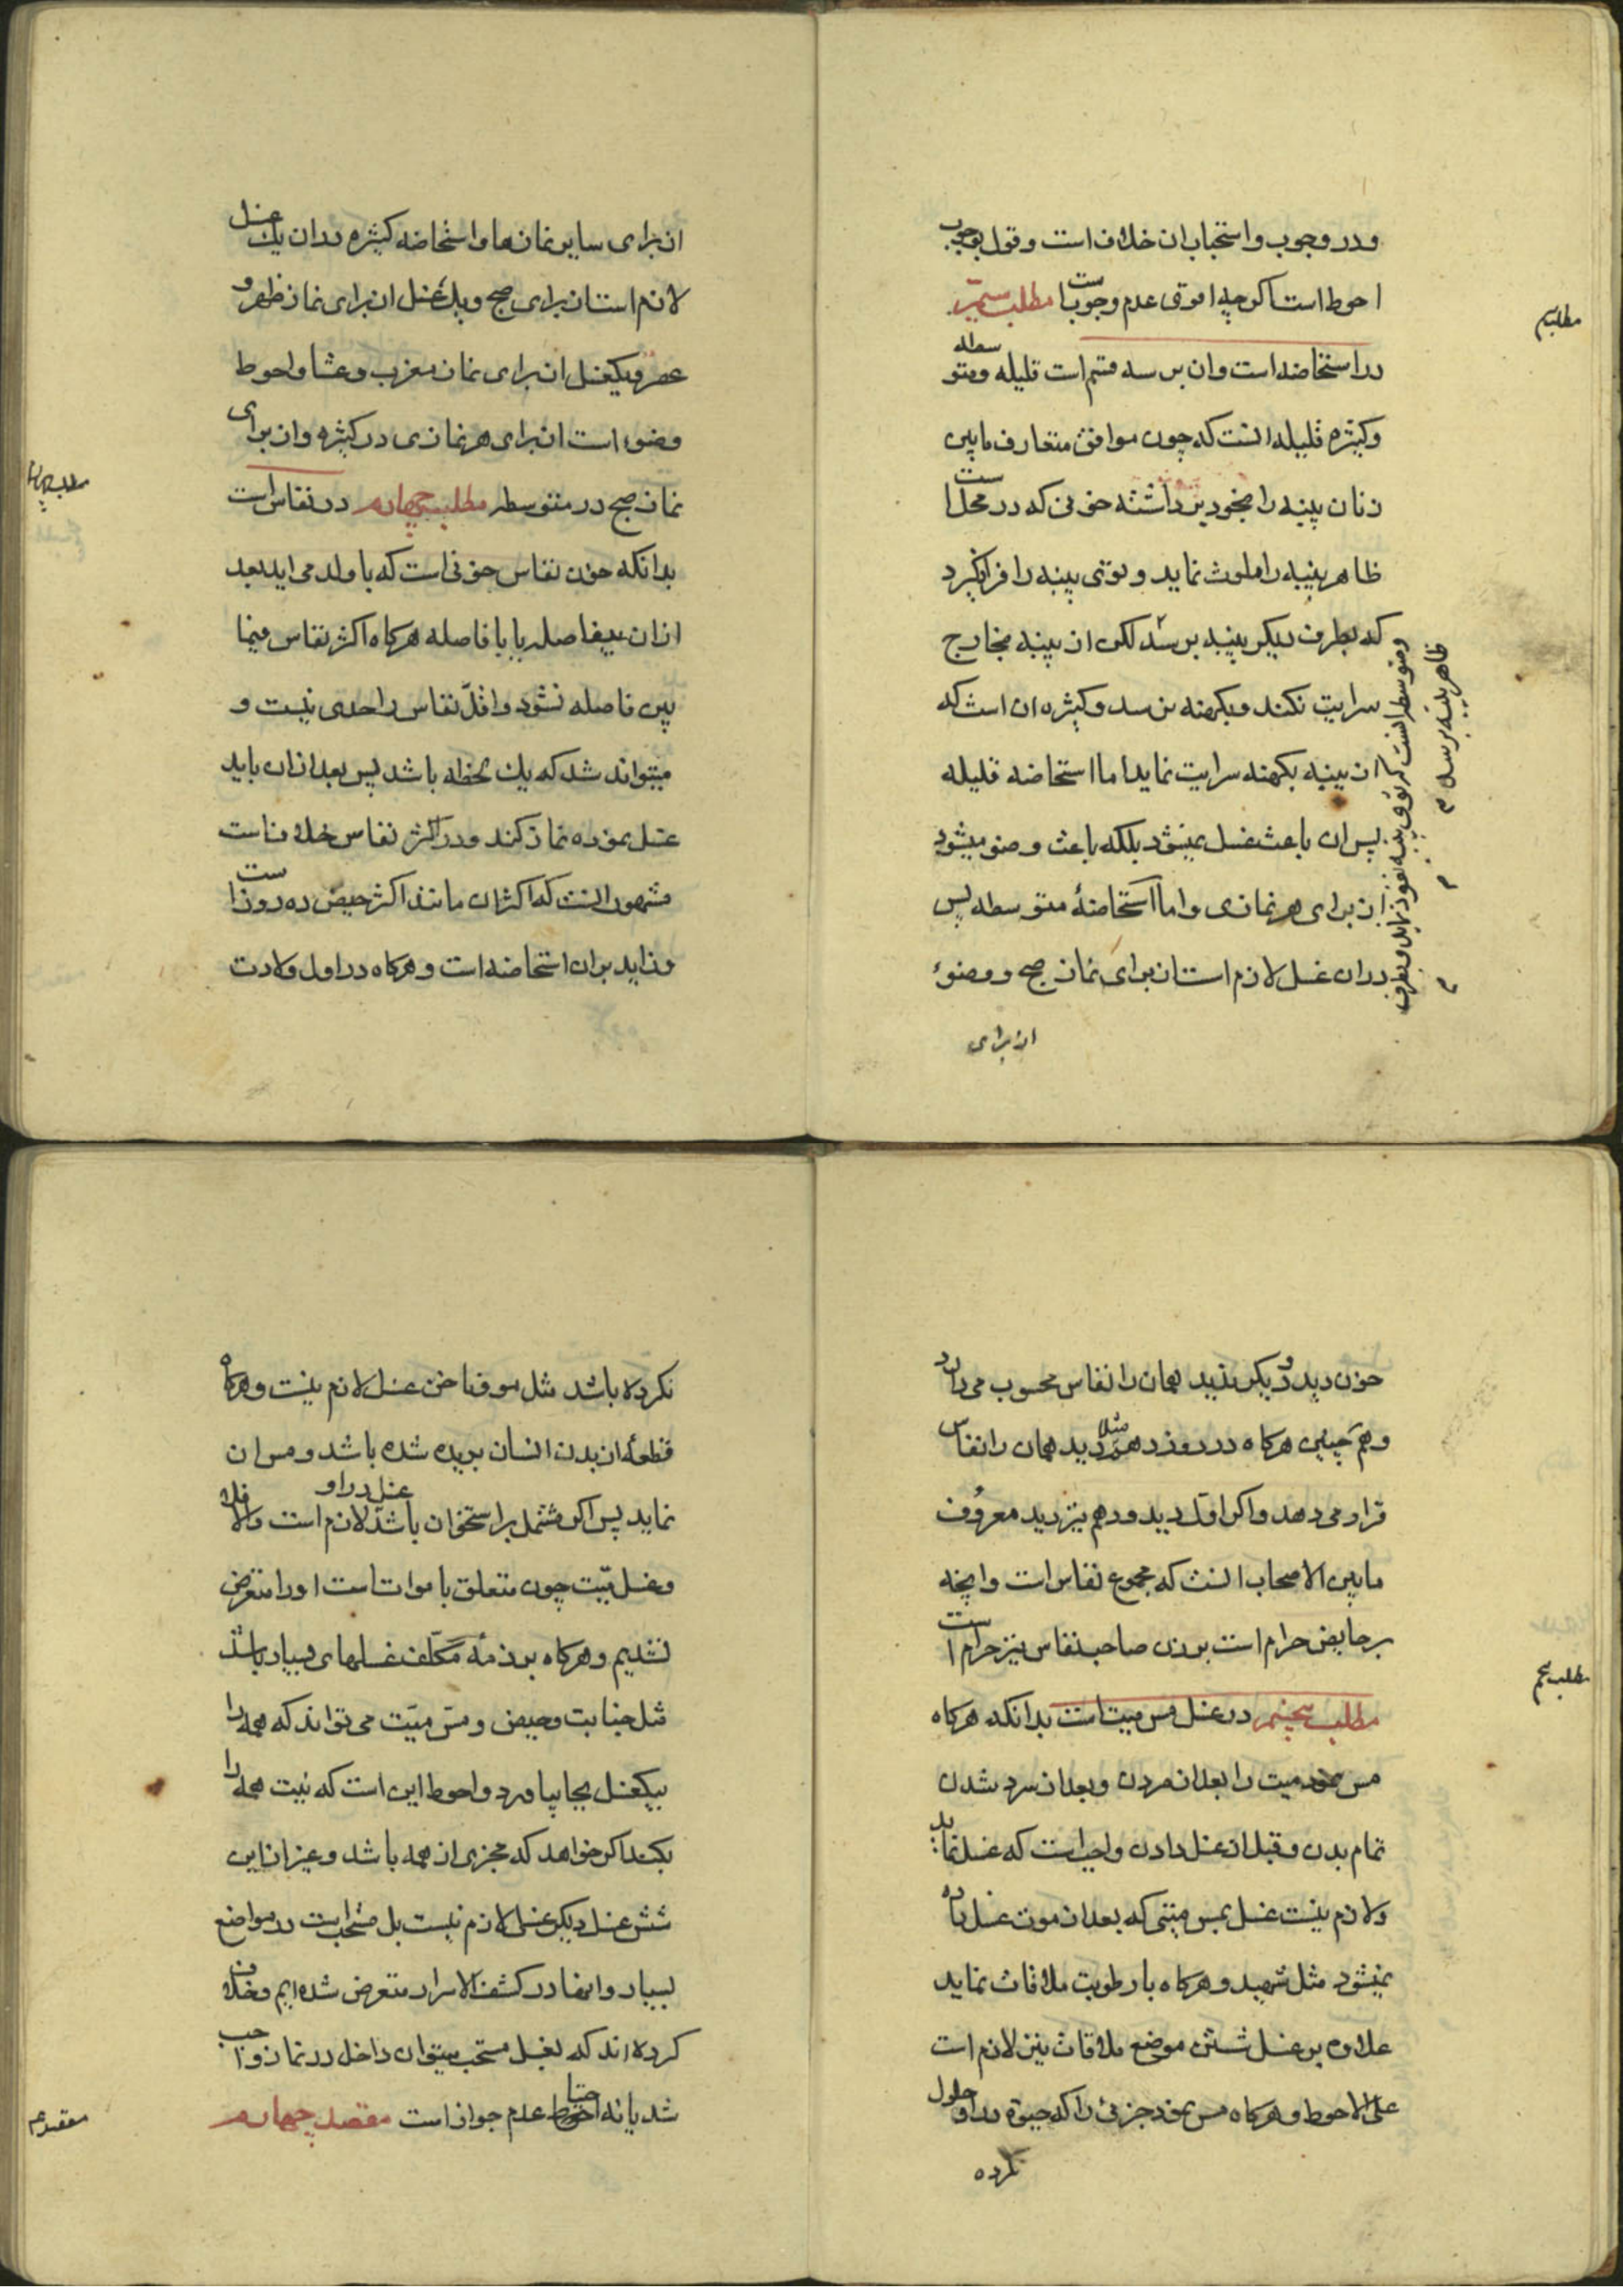 و در وجوب و استحباب ان خلاف است و قول بوجوب
احوط است اکرچه اقوی عدم وجوبست مطلب سیّم
مطلب سیم
در استحاضه است وان بر سه قسم است قلیله و متوسطه
و کثیره قلیله انست که چون موافق متعارف مابین
زنان پنبه را بخود برداشته خونی که در محل است
ظاهر پنبه را ملوث نماید و توی پنبه را فرانکیرد
که بطرف دیکر پنبه برسد لکن از پنبه بخارج
سرایت نکند و بکهنه نرسد و کثیره ان است که
از پنبه بکهنه سرایت نماید اما استحاضه قلیله
پس ان باعث غسل نمیشود بلکه باعث وضو میشود
از برای هر نمازی و اما استحاضهٔ متوسطه پس
در ان غسل لازم است از برای نماز صبح و وضوء
و متوسطه انست که توی پنبه نفوذ نماید و بطرف
ظاهر پنبه برسد م
از برای
از برای سایر نمازها و استحاضه کثیره در ان یک غسل
لازم است از برای صبح و یک غسل از برای نماز ظهر و
عصر و یکغسل از برای نماز مغرب و عشا و احوط
وضوء است از برای هر نمازی در کثیره و از برای
نماز صبح در متوسطه مطلب چهارم در نفاس است
مطلب چهارم
بدانکه خون نفاس خونی است که با ولد می اید یا بعد
از ان بیفاصله یا با فاصله هرکاه اکثر نفاس فیما
بین فاصله نشود و اقلّ نفاس را حدی نیست و
میتواند شد که یک لحظه باشد پس بعد از ان باید
غسل نموده نماز کند و در اکثر نفاس خلاف است
مشهور انست که اکثر ان مانند اکثر حیض ده روز است
و زاید بر ان استحاضه است و هرکاه در اول ولادت
خون دید و دیکر ندید همان را نفاس محسوب می دارد
و همچنین هرکاه در روز دهم مثلا دید همان را نفاس
قرار می دهد و اکر اوّل دید و دهم نیز دید معروف
مابین الاصحاب انست که مجموع نفاس است و انچه
بر حایض حرام است بر زن صاحب نفاس نیز حرام است
مطلب پنجم در غسل مس میت است بدانکه هرکاه
مطلب پنجم
مس نمود میت را بعد از مردن و بعد از سرد شدن
تمام بدن و قبل از غسل دادن واجب است که غسل نماید
و لازم نیست غسل بمس میتی که بعد از موت غسل داده
نمیشود مثل شهید و هرکاه با رطوبت ملاقات نماید
علاوه بر غسل شستن موضع ملاقات نیز لازم است
علی الاحوط و هرکاه مس نمود جزئی را که حیوة در او حلول
نکرده
نکرده باشد مثل مو و ناخن غسل لازم نیست و هرکاه
قطعهٔ از بدن انسان بریده شده باشد و مس ان
نماید پس اکر مشتمل بر استخوان باشد غسل در او لازم است و الا فلا
و غسل میّت چون متعلق باموات است او را متعرض
نشدیم و هرکاه بر ذمهٔ مکلّف غسلهای بسیار باشد
مثل جنابت و حیض و مسّ میّت می تواند که همه را
بیکغسل بجا بیاورد و احوط این است که نیت همه را
بکند اکر خواهد که مجزی از همه باشد و غیر از این
شش غسل دیکر غسلی لازم نیست بل مستحب است در مواضع
بسیار و انها در کشف الاسرار متعرض شده ایم و خلاف
کرده اند که بغسل مستحب میتوان داخل در نماز واجب
شد یا نه احتیاط عدم جواز است مقصد چهارم
مقصد چهارم